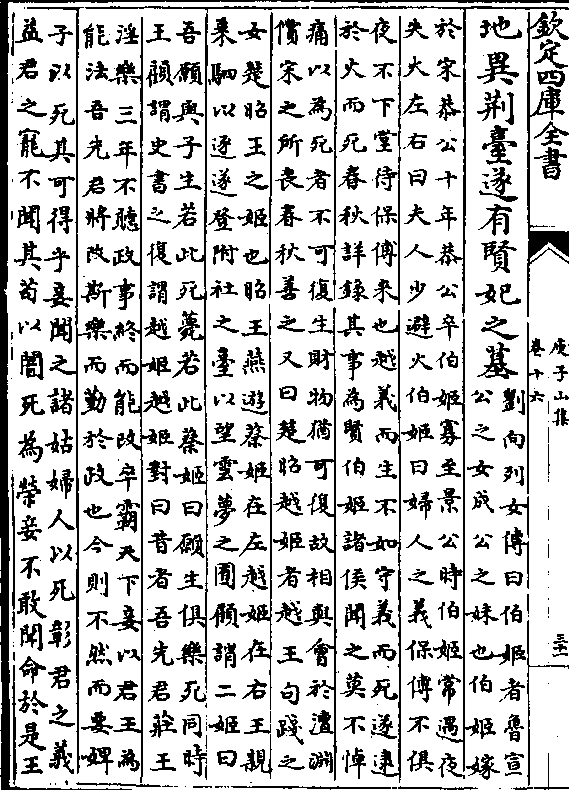 欽定四庫全書
庾子山集
卷十六
三十一
地異荆臺遂有賢妃之墓
劉向列女傳曰伯姬者魯宣
公之女成公之妹也伯姬嫁
於宋恭公十年恭公卒伯姬寡至景公時伯姬常遇夜
失火左右曰夫人少避火伯姬曰婦人之義保傅不俱
夜不下堂待保傅來也越義而生不如守義而死遂逮
於火而死春秋詳錄其事為賢伯姬諸侯聞之莫不悼
痛以為死者不可復生財物猶可復故相與會於澶淵
償宋之所喪春秋善之又曰楚昭越姬者越王句踐之
女楚昭王之姬也昭王燕遊蔡姬在左越姬在右王親
乗駟以逐遂登附社之臺以望雲夢之囿顧謂二姬曰
吾願與子生若此死薨若此蔡姬曰願生俱樂死同時
王顧謂史書之復謂越姬越姬對曰昔者吾先君莊王
淫樂三年不聽政事終而能改卒霸天下妾以君王為
能法吾先君將改斯樂而勤於政也今則不然而要婢
子以死其可得乎妾聞之諸姑婦人以死彰君之義
益君之寵不聞其苟以闇死為榮妾不敢聞命於是王